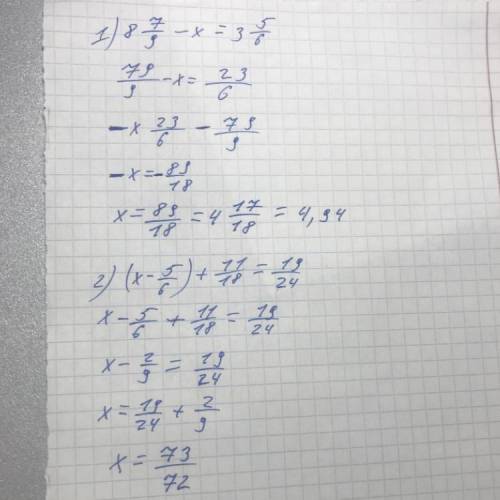 1) 8 7/9 - x = 3 5/6
79/9 - x = 23/6
- x 23/6 - 79/9
- x = - 89/18
x = 89/18 = 4 17/18 = 4,94
2) (x - 5/6) + 11/18 = 19/24
x - 5/6 + 11/18 = 19/24
x - 2/9 = 19/24
x = 19/24 + 2/9
x = 73/72